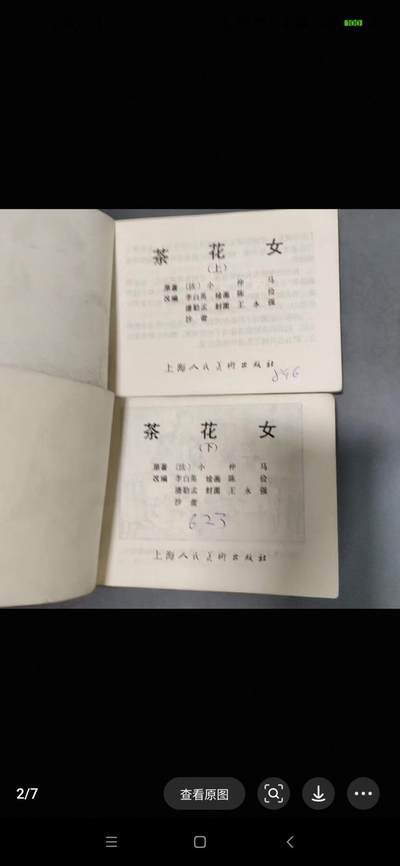 100
茶 花 女
(上)
原著 (法) 小 仲 马
改编 李白英 绘画 陈 俭
潘勤孟 封面 王 永 强
沙 葭
上海人民美术出版社
896
茶 花 女
(下)
原著 (法) 小 仲 马
改编 李白英 绘画 陈 俭
潘勤孟 封面 王 永 强
623
上海人民美术出版社
2/7
查看原图